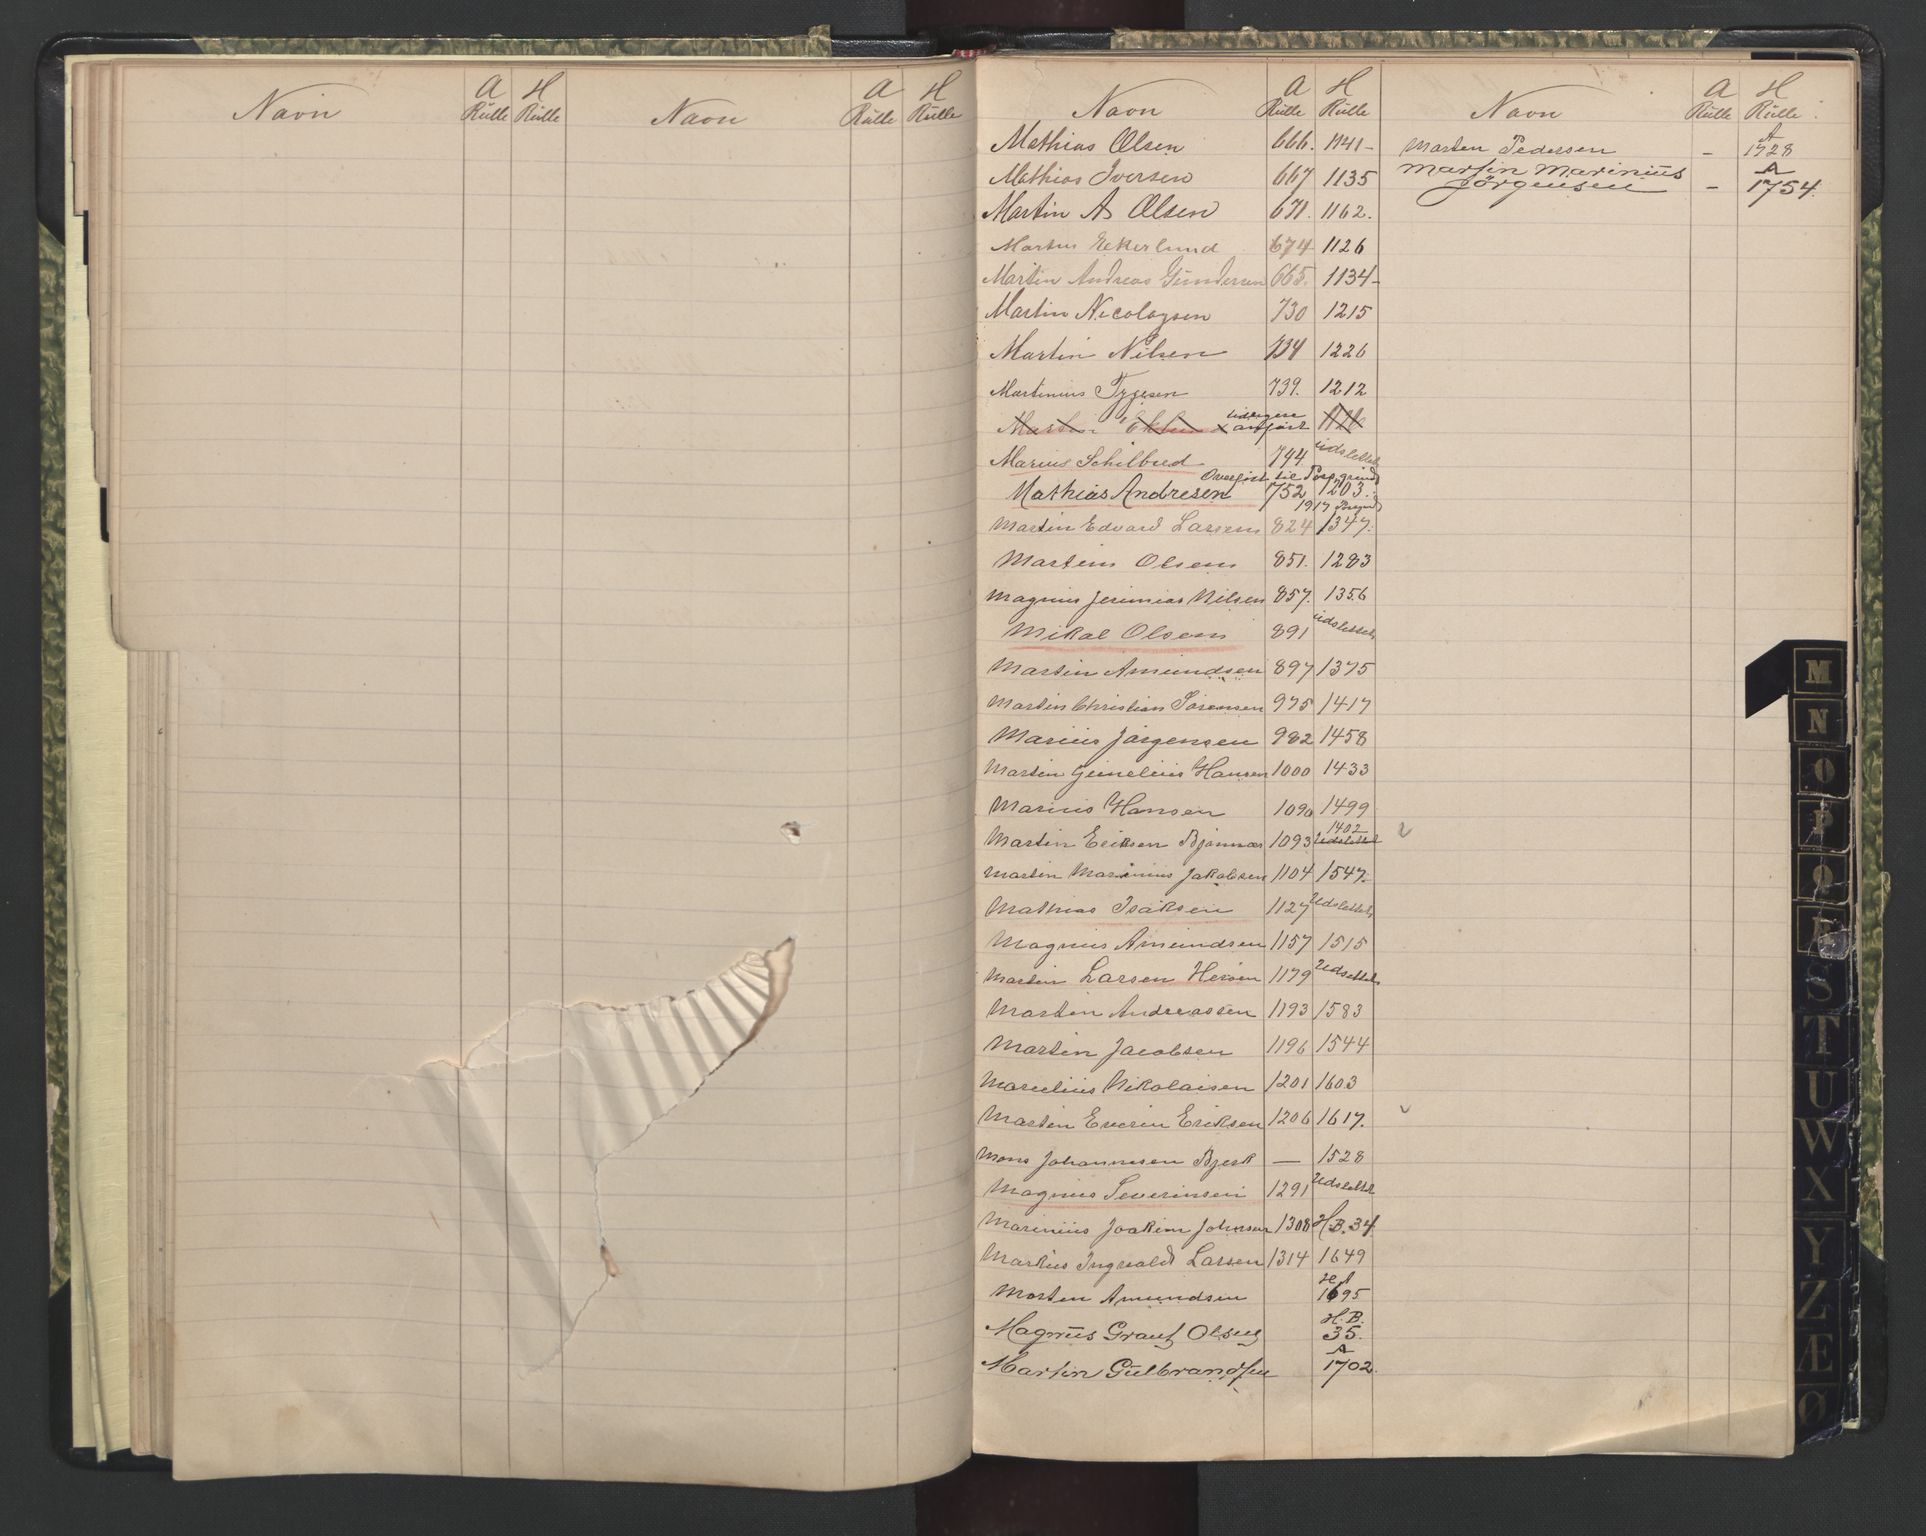 Navn A Rulle H Rulle Navn A Rulle H Rulle
Navn A Rulle H Rulle
Mathias Olsen 666. 1141-
Mathias Iversen 667 1135
Martin A Olsen 671. 1162.
Martin Eckerlund 674 1126
Martin Andreas Gundersen 665. 1134-
Martin Nicolaysen 730 1215
Martin Nilsen 734 1226
Martinius Tygesen 739. 1212
tidligere
anført
Marius Schilbred 744. udslettet
Overført til Porsgrund
Mathias Andresen 752 1203.
1917
Martin Edvard Larsen 824 1347.
Martin Olsen 851. 1283
Magnus Jerimias Nilsen 857. 1356
Mikal Olsen 891 udslettet
Martin Amundsen 897 1375
Martin Christian Sørensen 975 1417
Marius Jørgensen 982 1458
Martin Hansen 1000 1433
Marius Hansen 1090 1499
1402
Martin Eriksen Bjønnæs 1093 Udslettet
Martin Marinius Jakobsen 1104 1547.
Mathias Isaksen 1127 Udslettet
Magnus Amundsen 1157 1515
Martin Larsen 1179 Udslettet
Martin Andreassen 1193 1583
Martin Jacobsen 1196 1544
Marelius Nikolaisen 1201 1603
Martin Everin Eriksen 1206 1617.
Mons Johannesen Bjerk — 1528
Magnus Severinsen 1291 Udslettet
Marinius Joakim Johnsen 1308 H.B. 34
Markus Ingvald Larsen 1314 1649
H A
Morten Amundsen 1695
H.B.
Magnus Olsen 35.
A
Martin Gulbrandsen 1702.
Navn A Rulle H Rulle
A
Marten Pedersen - 1728
Martin Marinius A
Jörgensen - 1754.
M
N
O
P
Q
R
S
T
U
W
X
Y
Z
Æ
Ø